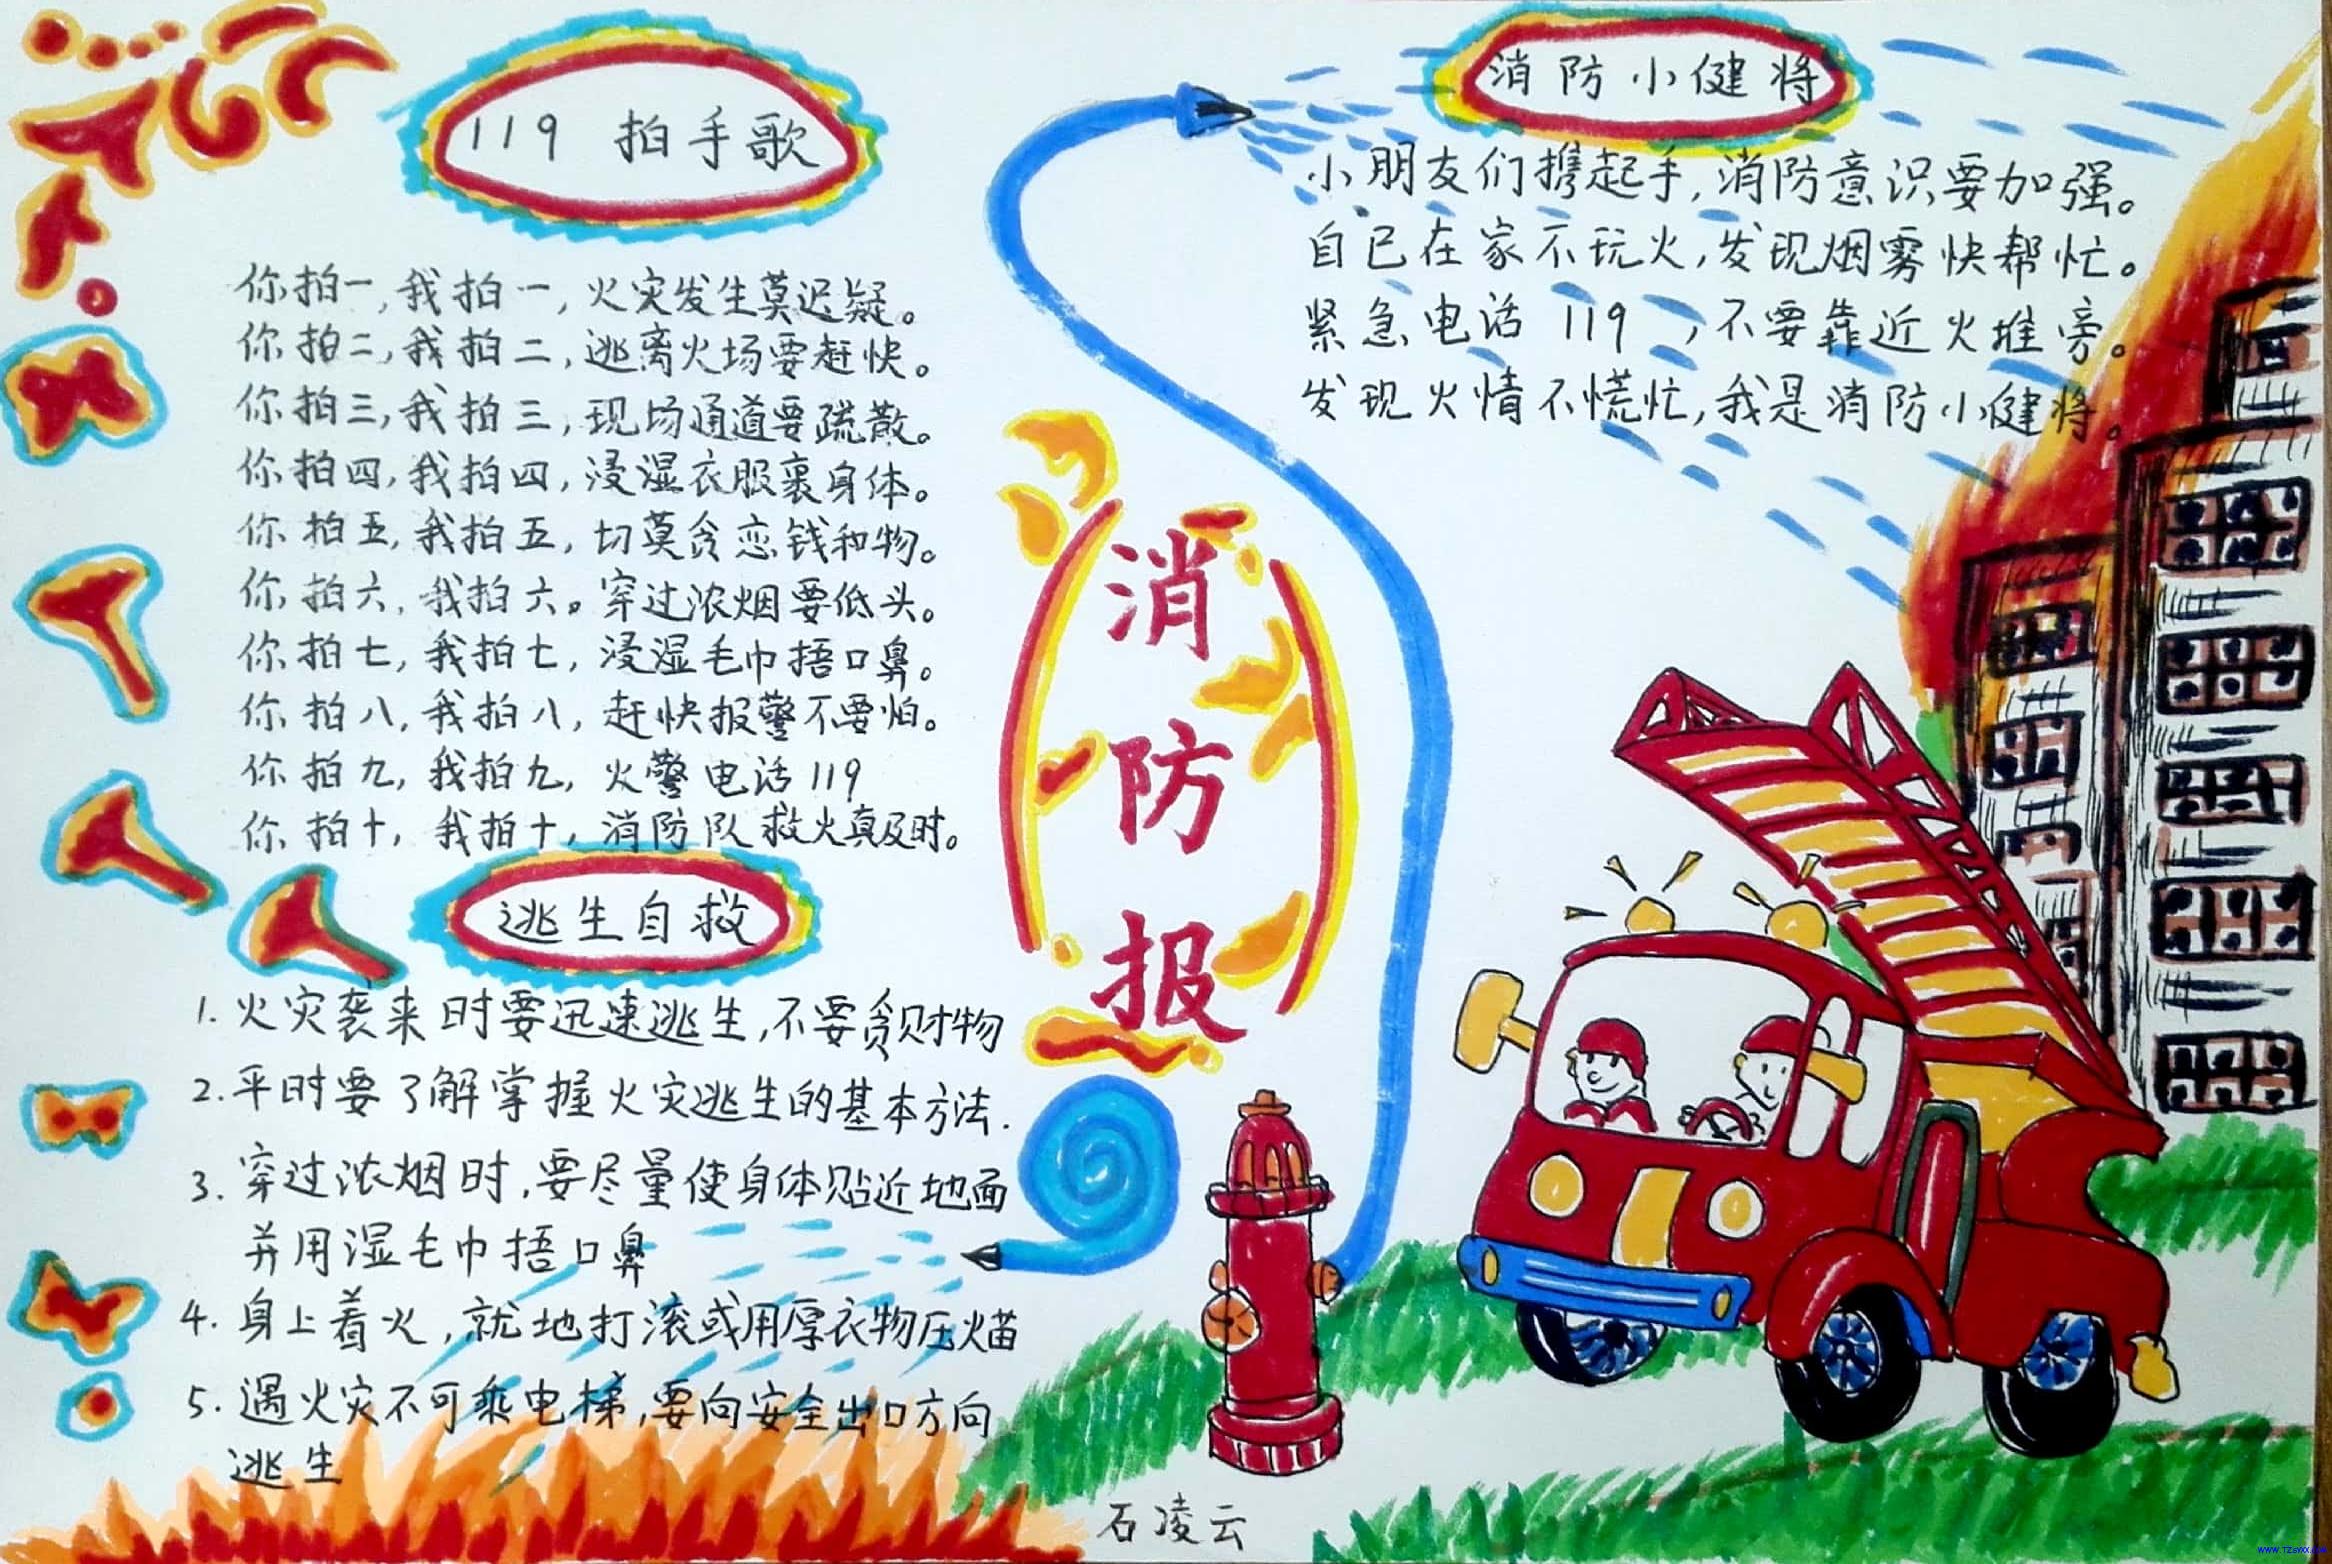 119 拍手歌
你拍一,我拍一,火灾发生莫迟疑。
你拍二,我拍二,逃离火场要赶快。
你拍三,我拍三,现场通道要疏散。
你拍四,我拍四,浸湿衣服裹身体。
你拍五,我拍五,切莫贪恋钱和物。
你拍六,我拍六。穿过浓烟要低头。
你拍七,我拍七,浸湿毛巾捂口鼻。
你拍八,我拍八,赶快报警不要怕。
你拍九,我拍九,火警电话119
你拍十,我拍十,消防队救火真及时。
逃生自救
1.火灾袭来时要迅速逃生,不要贪财物
2.平时要了解掌握火灾逃生的基本方法.
3.穿过浓烟时,要尽量使身体贴近地面
并用湿毛巾捂口鼻
4.身上着火,就地打滚或用厚衣物压火苗
5.遇火灾不可乘电梯,要向安全出口方向
逃生
消
防
报
消防小健将
小朋友们携起手,消防意识要加强。
自已在家不玩火,发现烟雾快帮忙。
紧急电话119,不要靠近火堆旁。
发现火情不慌忙,我是消防小健将。
石凌云